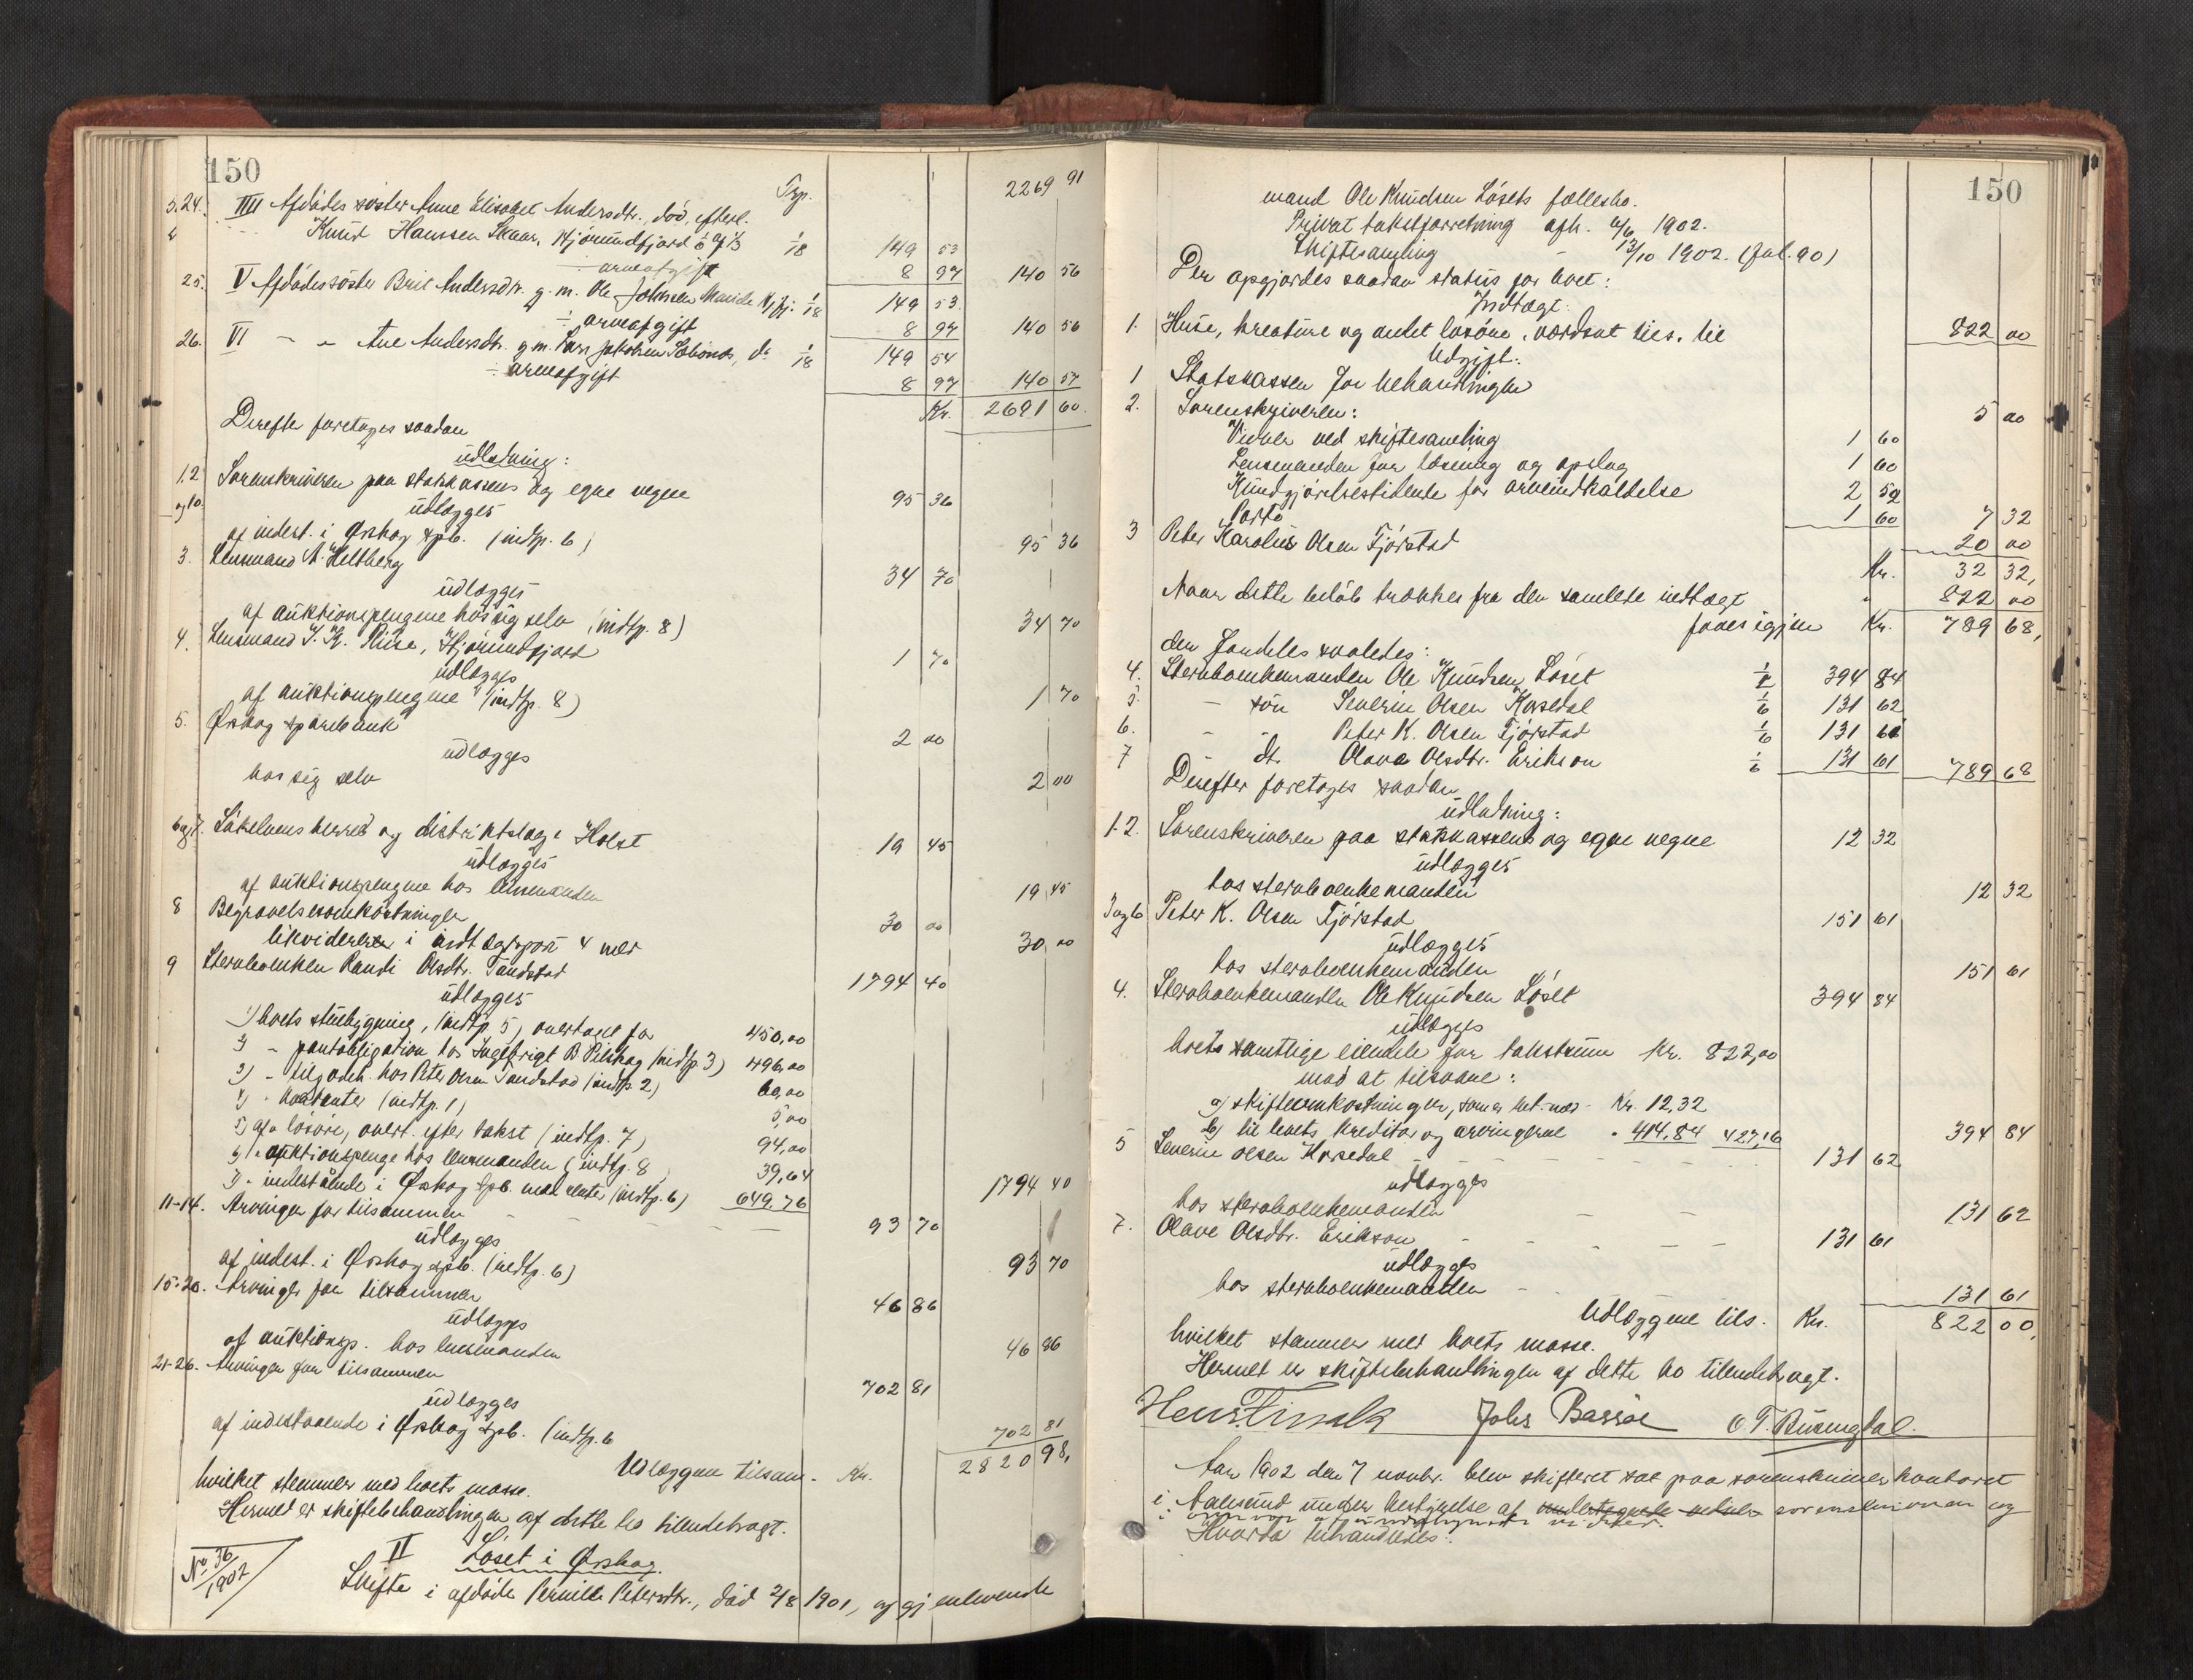 150
Trp. 2269 91
S. 24. IIII Afdødes søster Anne Elisabet Andersdtr., død, efterl.
Knud Hanssen Skaar, Hjørundfjord 1/6 af 1/3 1/18 149 53
÷ arveafgift 8 97 140 56
25. V Afdødes søster Brit Andersdtr. g.m. Ole Johnsen 1/18 149 53
÷ arveafgift 8 97 140 56
26. VI - " Ane Andersdtr. g.m. Lars Jakobsen do 1/18 149 54
÷ arveafgift 8 97 140 57
Kr. 2691 60
Derefter foretages saadan
udlodning:
1.2 Sorenskriveren paa statskassens og egne vegne 95 36
og 10 udlægges
af indest. i Ørskog spb. (indtp. 6) 95 36
3. Lensmand A. Heltberg 34 70
udlægges
af auktionspengene hos sig selv (indtp. 8) 34 70
4. Lensmand I. K. Riise, Hjørundfjord 1 70
udlægges
af auktionspengene (indtp. 8) 1 70
5. Ørskog sparebank 2 00
udlægges
hos sig selv 2 00
6 og 7. Søkelvens herred og distriktslæge Holst 19 45
udlægges
af auktionspengene hos lensmanden 19 45
8 Begravelsesomkostninger 30 00
likvideres i indtægtspost 4 med 30 00
9 Sterboenken Randi Olsdtr. Tandstad 1794 40
udlægges
1) boets stuebygning, (indtp. 5) overtaget for 450,00
2) - pantobligation hos Ingebrigt B Pilskog (indtp. 3) 496,00
3) - tilgodeh. hos Peter Olsen Tandstad (indtp. 2) 60,00
4) - kontanter (indtp. 1) 5,00
5) af - løsøre, overt. efter takst (indtp. 7) 94,00
6) - auktionspenge hos lensmanden (indtp. 8 39,64
7) - indestående i Ørskog spb. med rente (indtp. 6) 649,76 1794 40
11-14. Arvinger faar tilsammen 93 70
udlægges
af indest. i Ørskog spb. (indtp. 6) 93 70
15-20. Arvinger faar tilsammen 46 86
udlægges
af auktionsp. hos lensmanden 46 86
21-26. Arvinger faar tilsammen 702 81
udlægges
af indestaaende i Ørskog spb. (indtp. 6 702 81
Udlæggene tilsam. Kr. 2820 98,
hvilket stemmer med boets masse.
Hermed er skiftebehandlingen af dette bo tilendebragt.
No 36/1902
II Løset i Ørskog.
Skifte i afdøde Pernille Petersdtr., død 2/8 1901, og gjenlevende
150
mand Ole Knudsen Løsets fællesbo.
Privat takstforretning afh. 1902.
Skiftesamling - 13/10 1902. (fol. 90)
Der opgjordes saadan status for boet:
Indtægt.
1. Huse, kreature og andet løsøre, værdsat tils. til 822 00
Udgift:
1 Statskassen for behandlingen 5 00
2. Sorenskriveren:
Vidner ved skiftesamling 1 60
Lensmanden for læsning og opslag 1 60
Kundgjørelsestidende for arveindkaldelse 2 52
Porto 1 60 7 32
3 Peter Karolius Olsen Fjørstad 20 00
Kr. 32 32,
Naar dette beløb trækkes fra den samlede indtægt " 822 00
faaes igjen Kr. 789 68,
der fordeles saaledes:
4. Sterboenkemanden Ole Knudsen Løset 1/2 394 84
5. - søn Severin Olsen Korsedal 1/6 131 62
6. - - Peter K. Olsen Fjørstad 1/6 131 61
7 - dt. Olava Olsdtr. Erikson 1/6 131 61 789 68
Derefter foretages saadan
udlodning:
1.2. Sorenskriveren paa statskassens og egne vegne 12 32
udlægges
hos sterboenkemanden 12 32
3 og 6 Peter K. Olsen Fjørstad 151 61
udlægges
hos sterboenkemanden 151 61
4. Sterboenkemanden Ole Knudsen Løset 394 84
udlægges
boets samtlige eiendele for takstsum Kr. 822,00
mod at tilsvare:
a) skifteomkostninger, som er bet. med - Kr. 12,32
b) til boets kreditor og arvingerne " 414,84 427,16 394 84
5 Severin Olsen Korsedal 131 62
udlægges
hos sterboenkemanden 131 62
7. Olave Olsdtr. Erikson 131 61
udlægges
hos sterboenkemanden 131 61
Udlæggene tils. Kr. 822 00,
hvilket stemmer med boets masse.
Hermed er skiftebehandlingen af dette bo tilendebragt.
Johs Bassøe
Aar 1902 den 7 novbr. blev skifteret sat paa sorenskriverkontoret
i Aalesund under bestyrelse af undertegnede sorenskriveren og
undertegnede vidner.
Hvorda behandledes: